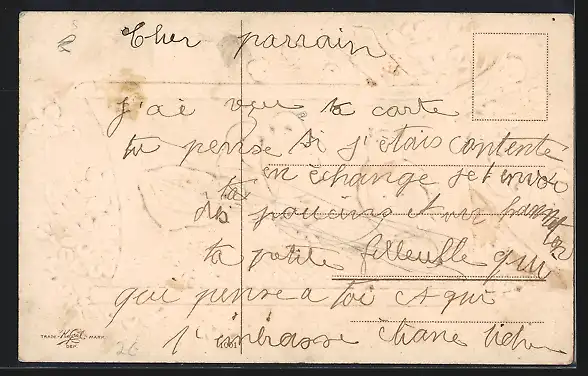 Cher parrain
j'ai veu ta carte
tu pense si j'etais contente
en échange je t'envoi
des poucins et une
ta petite filleuille qui
qui pense a toi et qui
t'imbrasse
TRADE Kopal MARK
DEP.
26